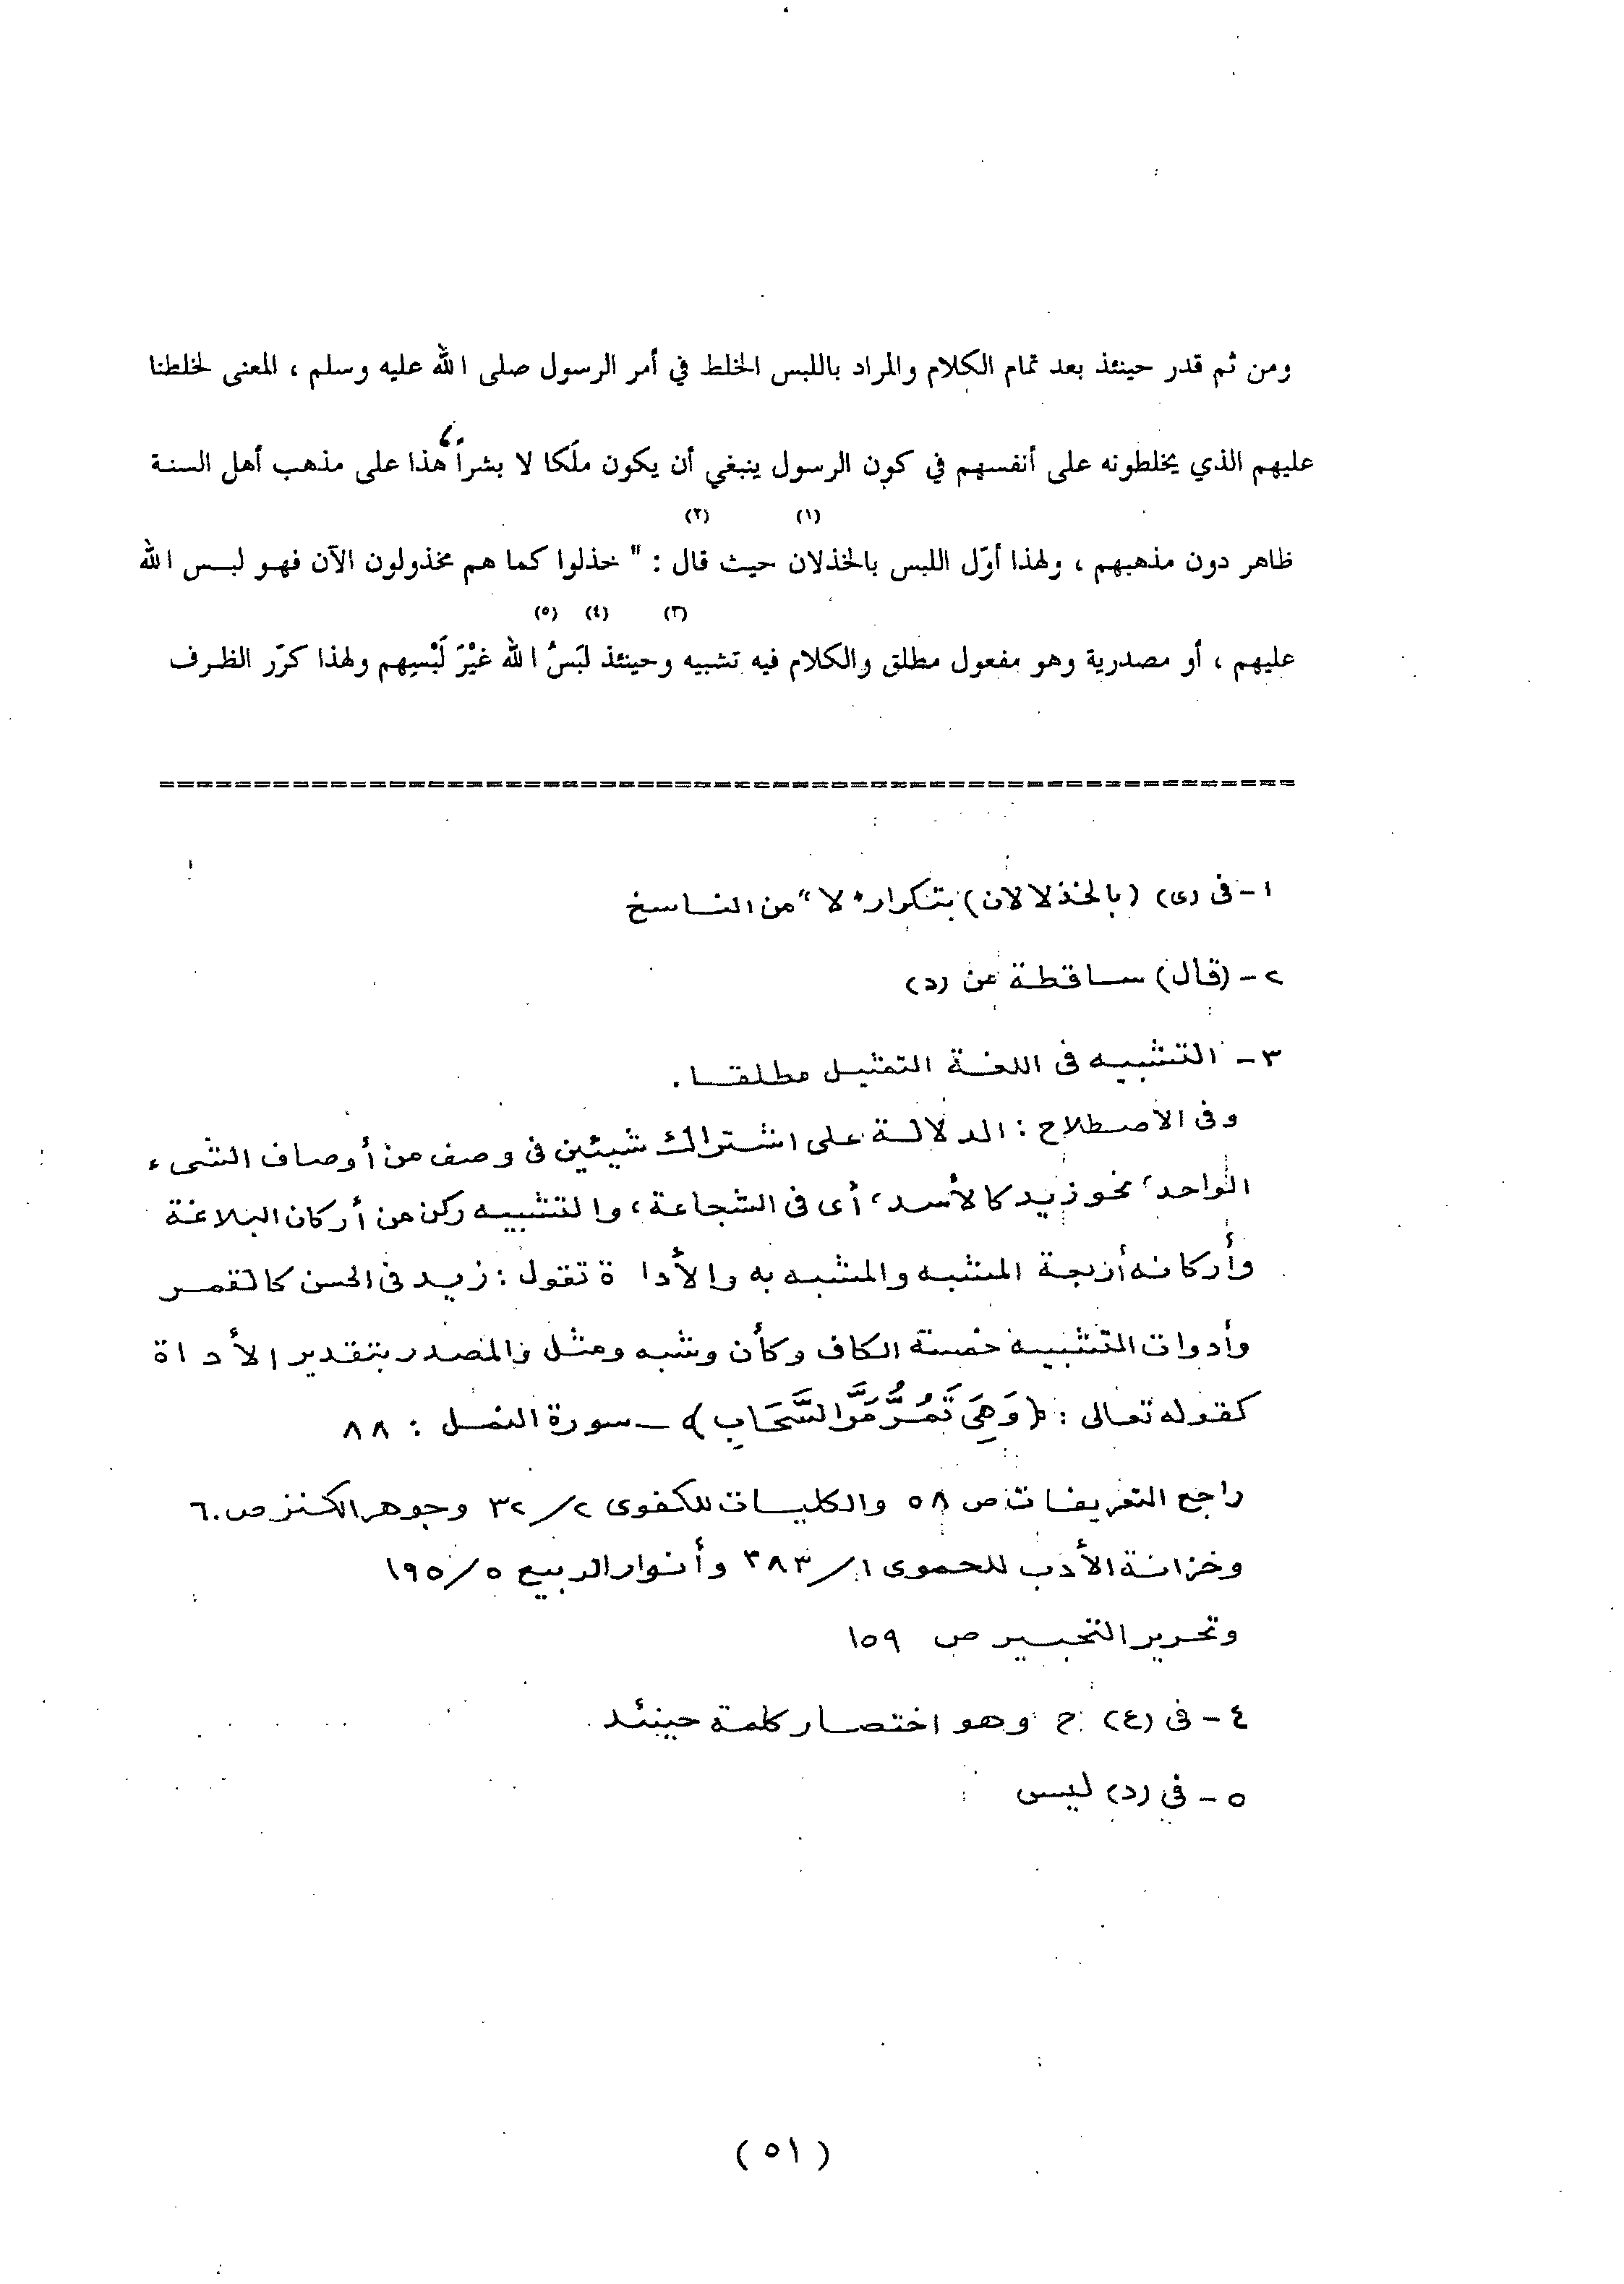 ومن ثم قدر حينئذ بعد تمام الكلام والمراد باللبس الخلط في أمر الرسول صلى الله عليه وسلم ، المعنى لخلطنا
عليهم الذي يخلطونه على أنفسهم في كون الرسول ينبغي أن يكون ملَكا لا بشراً ، هذا على مذهب أهل السنة
(١) (٢)
ظاهر دون مذهبهم ، ولهذا أوّل اللبس بالخذلان حيث قال : " خذلوا كما هم مخذولون الآن فهو لبس الله
(٣) (٤) (٥)
عليهم ، أو مصدرية وهو مفعول مطلق والكلام فيه تشبيه وحينئذ لبَسُ الله غيْرَ لَبْسِهم ولهذا كرّر الظرف
١ - فى (ى) (بالخذلالان) بتكرار "لا" من الناسخ
٢ - (قال) ساقطة من (د)
٣ - التشبيه فى اللغة التمثيل مطلقا .
وفى الاصطلاح : الدلالة على اشتراك شيئين فى وصف من أوصاف الشىء
الواحد ، نحو زيد كالأسد ، أى فى الشجاعة ، والتشبيه ركن من أركان البلاغة
وأركانه أربعة المشبه والمشبه به والأداة تقول : زيد فى الحسن كالقمر
وأدوات التشبيه خمسة الكاف وكأن وشبه ومثل والمصدر بتقدير الأداة
كقوله تعالى : ﴿ وَهِىَ تَمُرُّ مَرَّ السَّحَابِ ﴾ - سورة النمل : ٨٨
راجع التعريفات ص ٥٨ والكليات للكفوى ٢/٣٢ وجوهر الكنز ص ٦٠
وخزانة الأدب للحموى ١/٣٨٣ وأنوار الربيع ٥/١٩٥
وتحرير التحبير ص ١٥٩
٤ - فى (ع) ح وهو اختصار كلمة حينئد
٥ - فى (د) ليس
(٥١)